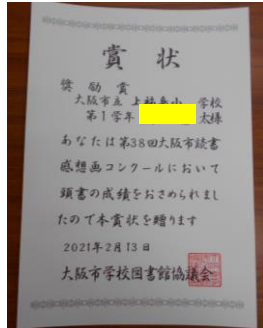 賞状
奨励賞
大阪市立 上福島小 学校
第1学年 太様
あなたは第38回大阪市読書
感想画コンクールにおいて
頭書の成績をおさめられまし
たので本賞状を贈ります
2021年2月13日
大阪市学校図書館協議会